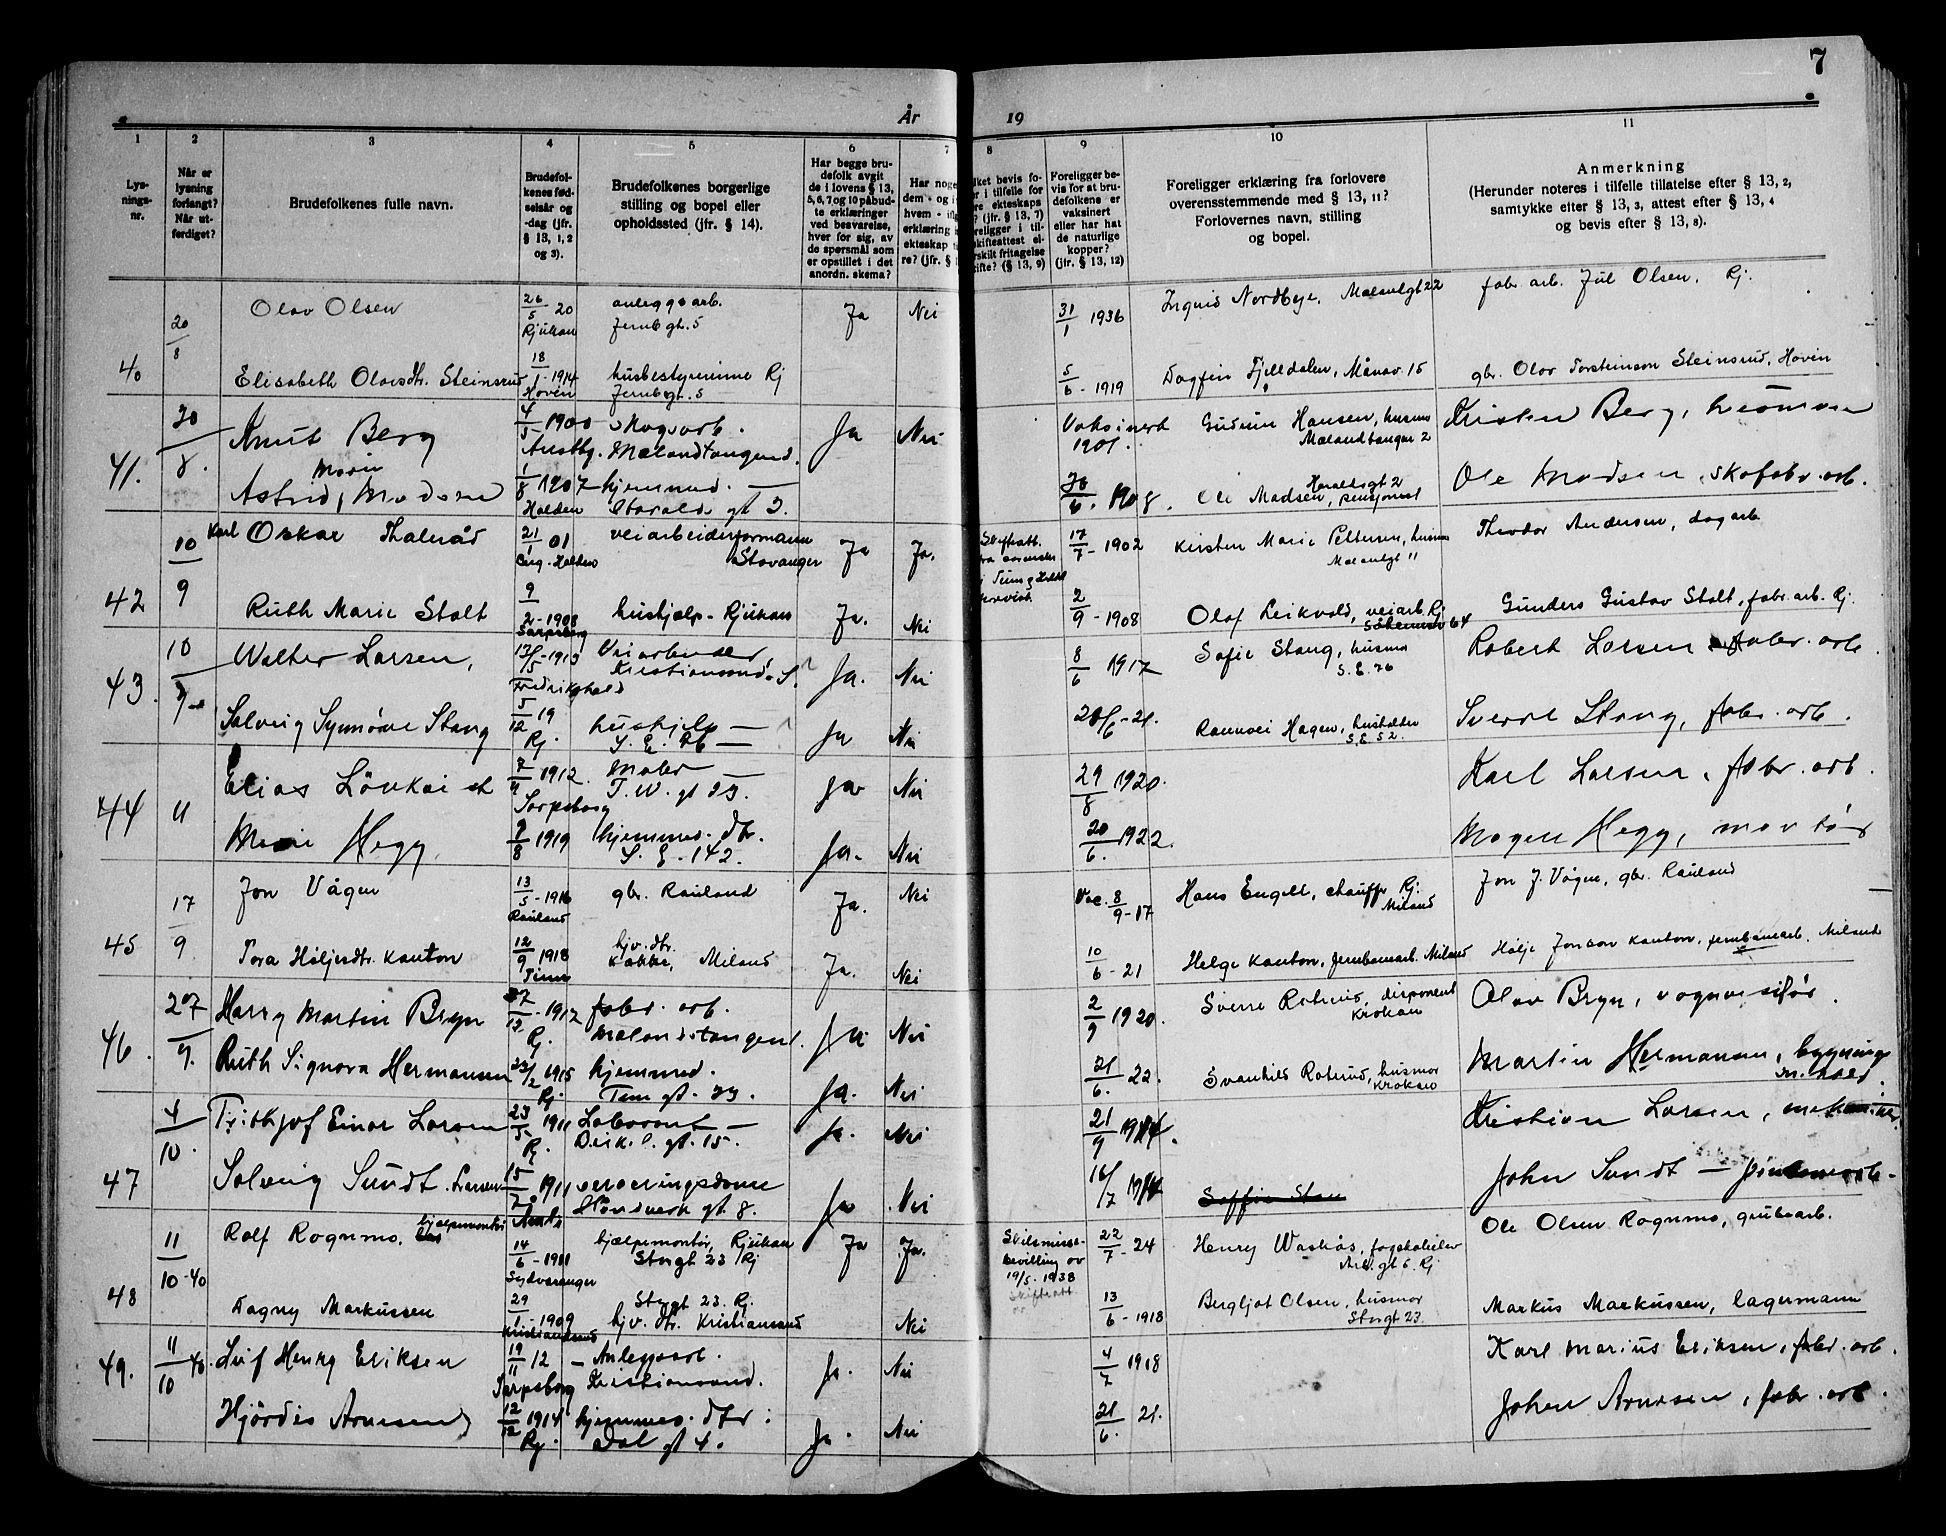 7
År 19
1 2 3 4 5 6 7 8 9 10 11
Lys-
nings-
nr.
Når er
lysning
forlangt?
Når ut-
ferdiget?
Brudefolkenes fulle navn.
Brudefol-
kenes fød-
selsår og
-dag (jfr.
§ 13, 1, 2
og 3).
Brudefolkenes borgerlige
stilling og bopel eller
opholdssted (jfr. § 14).
Har begge bru-
defolk avgit
de i lovens § 13,
5, 6, 7, og 10 påbud-
te erklæringer
ved besvarelse,
hver for sig, av
de spørsmål som
er opstillet i det
anordn. skema?
Har noge
dem - og i
hvem - ifl
erklæring
ekteskap ti
re? (jfr. §
lket bevis fo-
r i tilfelle for
re ekteskaps
? (jfr. § 13, 7)
religger i til-
skifteattest el-
rskilt fritagelse
ifte? (§ 13, 9)
Foreligger be-
vis for at bru-
defolkene er
vaksinert
eller har hat
de naturlige
kopper?
(jfr. § 13, 12)
Foreligger erklæring fra forlovere
overensstemmende med § 13, 11?
Forlovernes navn, stilling
og bopel.
Anmerkning
(Herunder noteres i tilfelle tillatelse efter § 13, 2,
samtykke efter § 13, 3, attest efter § 13, 4
og bevis efter § 13, 8).
40 20/8 Olav Olsen 26/5 20 Rjukan anleggsarb. Jernbgt. 5 Ja Nei 31/1 1936 Nordbye, fabr. arb. Jul Olsen, Rj.
Elisabeth Olavsdtr. Steinsrud 18/1 - 1914 Hovin husbestyrerinne Rj Jernbgt. 5 5/6 - 1919 Dagfin Fjelldalen, Månav. 15 gbr. Olav Torsteinson Steinsrud, Hovin
41. 20/8. Knut Berg 4/5 1900 Skogsarb. Ja Nei 1901. Gudrun Hansen, husmor Mælandtangen 2 Kristen Berg,
Astrid Marie Madsen 1/8 1907 Halden hjemmev. Haralds gt 2. /6. 1908. Ole Madsen, Haraldsgt 2 pensjonist Ole Madsen, skofabr. arb.
42 10/9 Karl Oskar Thalerås 21/1 01 veiarbeiderformann Stavanger Ja Ja. 17/7 - 1902 Kirsten Marie Pettersen, husmor Theodor Andersen, dagarb
Ruth Marie Stolt 9/2 - 1908 Sarpsborg hushjelp - Rjukan Ja. Nei 2/9 - 1908 Olaf Leikvold, veiarb. Rj 64 Gunders Gustav Stolt, fabr. arb. Rj.
43. 10/9 Walter Larsen, /5 - 1913 Fredrikshald Veiarbeider, Kristiansund. Ja. Nei 8/6 1917 Sofie Stang, husmor S. E. 76 Robert Larsen fabr. arb.
Solveig Synnöve Stang 5/12 19 Rj. hushjelp — S. E. 76 — Ja Nei 20/6 - 21. Rannvei Hagen, S. E 52. Sverre Stang, fabr. arb.
44 " Elias Lövkvist 7/9 1912. Sarpsborg Maler — T. W. gt 23. Ja Nei 29/8 1920. Karl Larsen, fabr. arb.
Marie Hegg. 9/8 1919 hjemmev. dtr. S. E - 142. Ja. Nei 20/6. 1922. Mogen Hegg,
45 17/9 Jon Vågen 13/5 - 1916 Rauland gbr. Rauland Ja. Nei Vac. 8/9 - 17 Hans Engell, chauffør Rj. Miland Jon J. Vågen, gbr. Rauland
Tora Höljesdtr. Kanton 12/9 1918 Tinn hjv. dtr. Miland Ja. Nei 10/6 - 21 Helge Kanton, jernbanearb. Miland Hölje Jonson Kanton, jernbanearb. Miland
46. 27/9. Harry Martin Bryn 27/12 - 1912 Rj. fabr. arb. Mælandstangen 1. Ja Nei 2/9 1920. Sverre Roterud, disponent Krokan Olav Bryn, vognvisitör.
Ruth Signora Hermansen 23/2 1915 Rj. hjemmev. Tinn gt. 23. Ja. Nei 21/6. 22. Svanhild Roterud, husmor Krokan Martin Hermansen, bygnings
47 4/10. Frithjof Einar Larsen 23/5 - 1911 Rj. Laborant — gt. 15. Ja. Nei 21/9 Kristian Larsen, mekaniker
Solveig Sundt. Larsen 15/7 1911 Håndverk gt. 8. Ja Nei 16/7 John Sundt —
48 11/10 - 40 Rolf Rognmo. hjelpemontör 14/6 - 1911 Sydvaranger hjelpemontör, Rjukan Storgt 23 Rj Ja Ja. Skilsmisse- bevilling av 19/5. 1938 Skifteatt 22/7 - 24 Henry Waskås, Rj Ole Olsen Rognmo, grubearb.
Dagny Markussen 29/1 - 1909 Kristiansund Storgt 23. Rj. hjv. dtr. Kristiansund Nei 13/6 - 1918 Bergljot Olsen, husmor Storgt 23 Markus Markussen, lagermann
49. 11/10 40. Leif Henry Eriksen 19/11 12 Sarpsborg — Anleggsarb. Kristiansund. Ja. Nei 4/7 1918 Karl Marius Eriksen, fabr. arb.
Hjördis Arnesen 12/12 1914 Rj. hjemmev. dtr. Dal gt 4. Ja. Nei 21/6. 21. Johan Arnesen, fabr. arb.